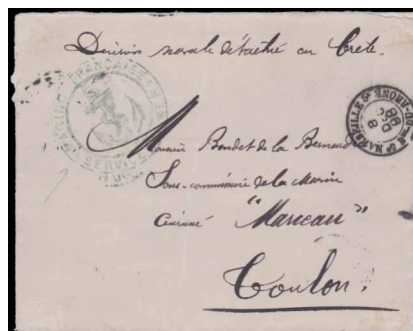 Division navale détachée en Crète.
MARINE FRANÇAISE
SERVICE
MARSEILLE
8
98
Monsieur Boudet de la
Sous-commissaire de la Marine
Cuirassé "Marceau"
Toulon.